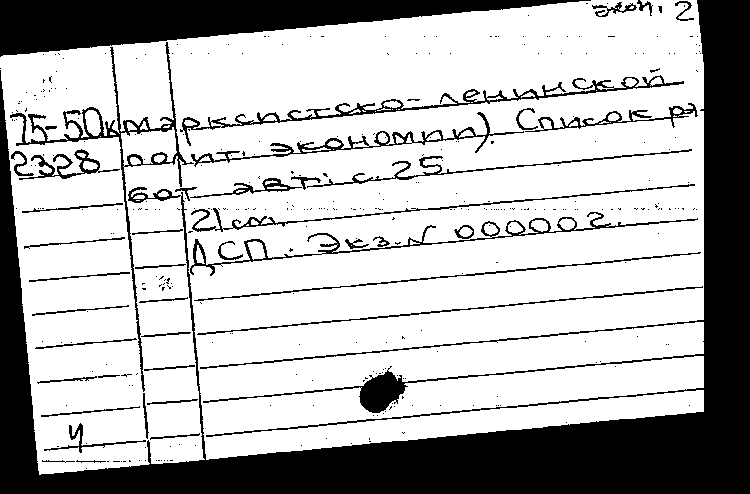 экон. 2
75-50к марксистско-ленинской
2328 полит. экономии). Список ра-
бот авт.: с. 25.
21 см.
ДСП. Экз. N 000002.